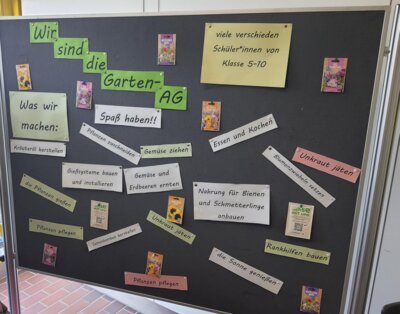 Wir
sind
die
Garten-
AG
viele verschieden
Schüler*innen von
Klasse 5-10
Was wir
machen:
Spaß haben!!
Kräuteröl herstellen
Pflanzen zuschneiden
Gemüse ziehen
Essen und Kochen
Blumenzwiebeln setzen
Unkraut jäten
Gießsysteme bauen
und installieren
Gemüse und
Erdbeeren ernten
Nahrung für Bienen
und Schmetterlinge
anbauen
die Pflanzen gießen
Pflanzen pflegen
Samenbomben herstellen
Unkraut jäten
Rankhilfen bauen
die Sonne genießen
Pflanzen pflegen